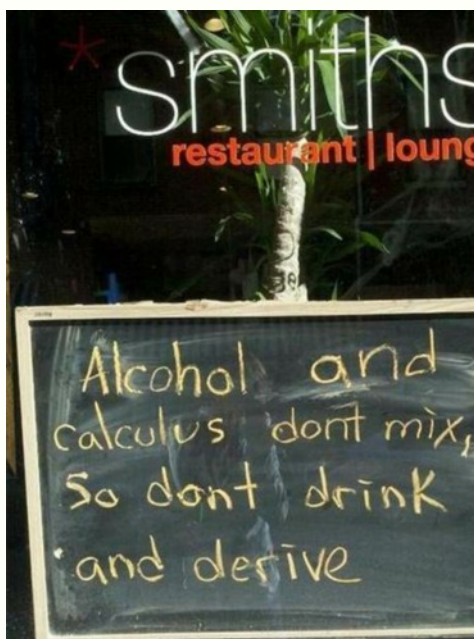 *smiths
restaurant | loung
Alcohol and
calculus dont mix,
So dont drink
and derive